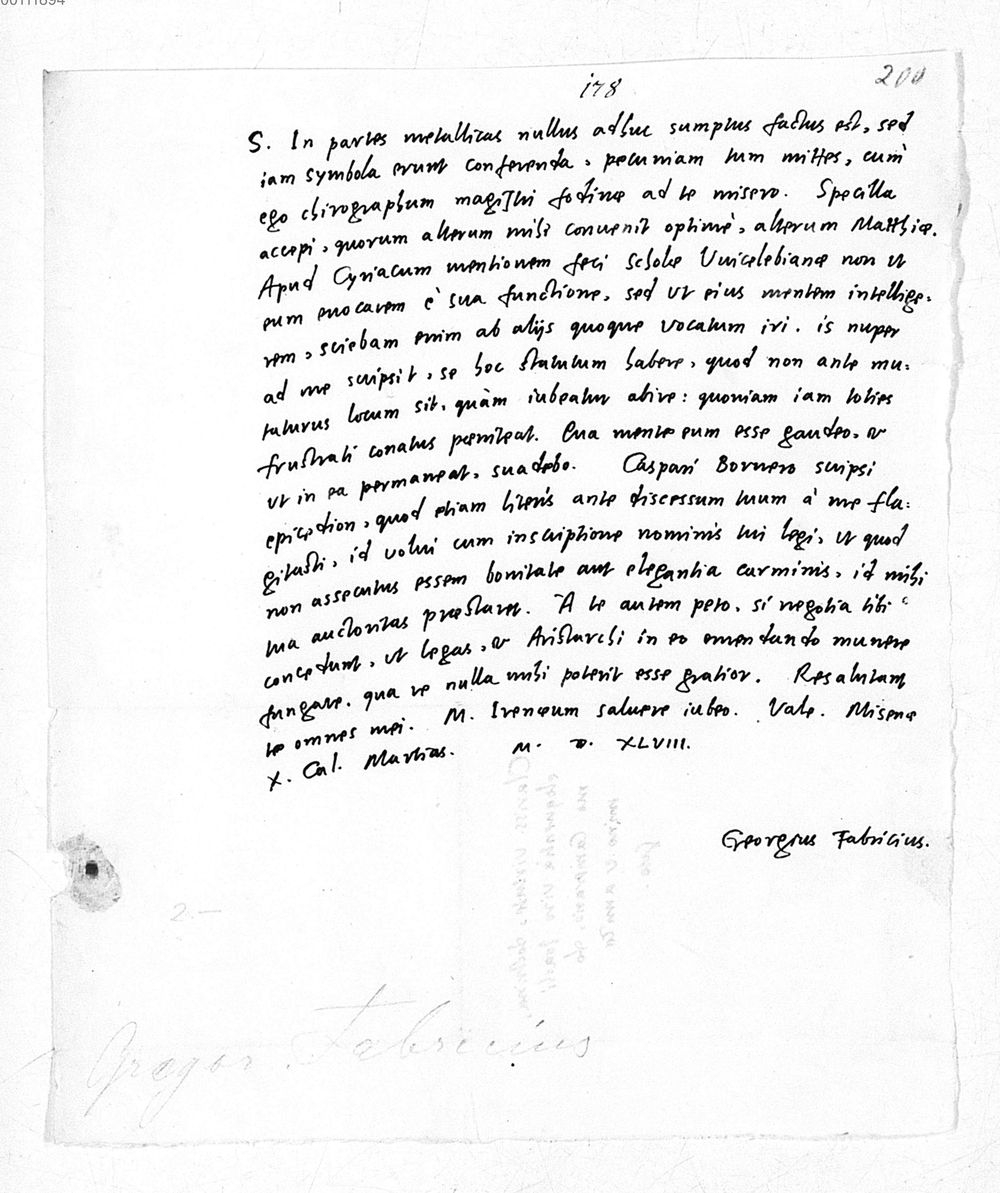 00111894
178
200
S. In partes metallicas nullus adhuc sumptus factus est, sed
iam symbola erunt conferenda, pecuniam tum mittes, cum
ego chirographum magistri fodinæ ad te misero. Specilla
accepi, quorum alterum mihi conuenit optimè, alterum Matthiæ.
Apud Cyriacum mentionem feci scholæ Vuicelebianæ non ut
eum euocarem è sua functione, sed ut eius mentem intellige-
rem, sciebam enim ab alijs quoque vocatum iri. is nuper
ad me scripsit, se hoc statutum habere, quod non ante mu-
taturus locum sit, quàm iubeatur abire: quoniam iam toties
frustrati conatus pœniteat. Qua mente eum esse gaudeo, &
ut in ea permaneat, suadebo. Caspari Bornero scripsi
epicedion, quod etiam literis ante discessum tuum à me fla-
gitasti, id volui cum inscriptione nominis tui legi, ut quod
non assecutus essem bonitate aut elegantia carminis, id mihi
tua auctoritas præstaret. A te autem peto, si negotia tibi
concedunt, ut legas, & Aristarchi in eo emendando munere
fungare. qua re nulla mihi poterit esse gratior. Resalutant
te omnes mei. M. Irenæum saluere iubeo. Vale. Misenæ
X. Cal. Martias. M. D. XLVIII.
Georgius Fabricius.
2.—
Gregor Fabricius